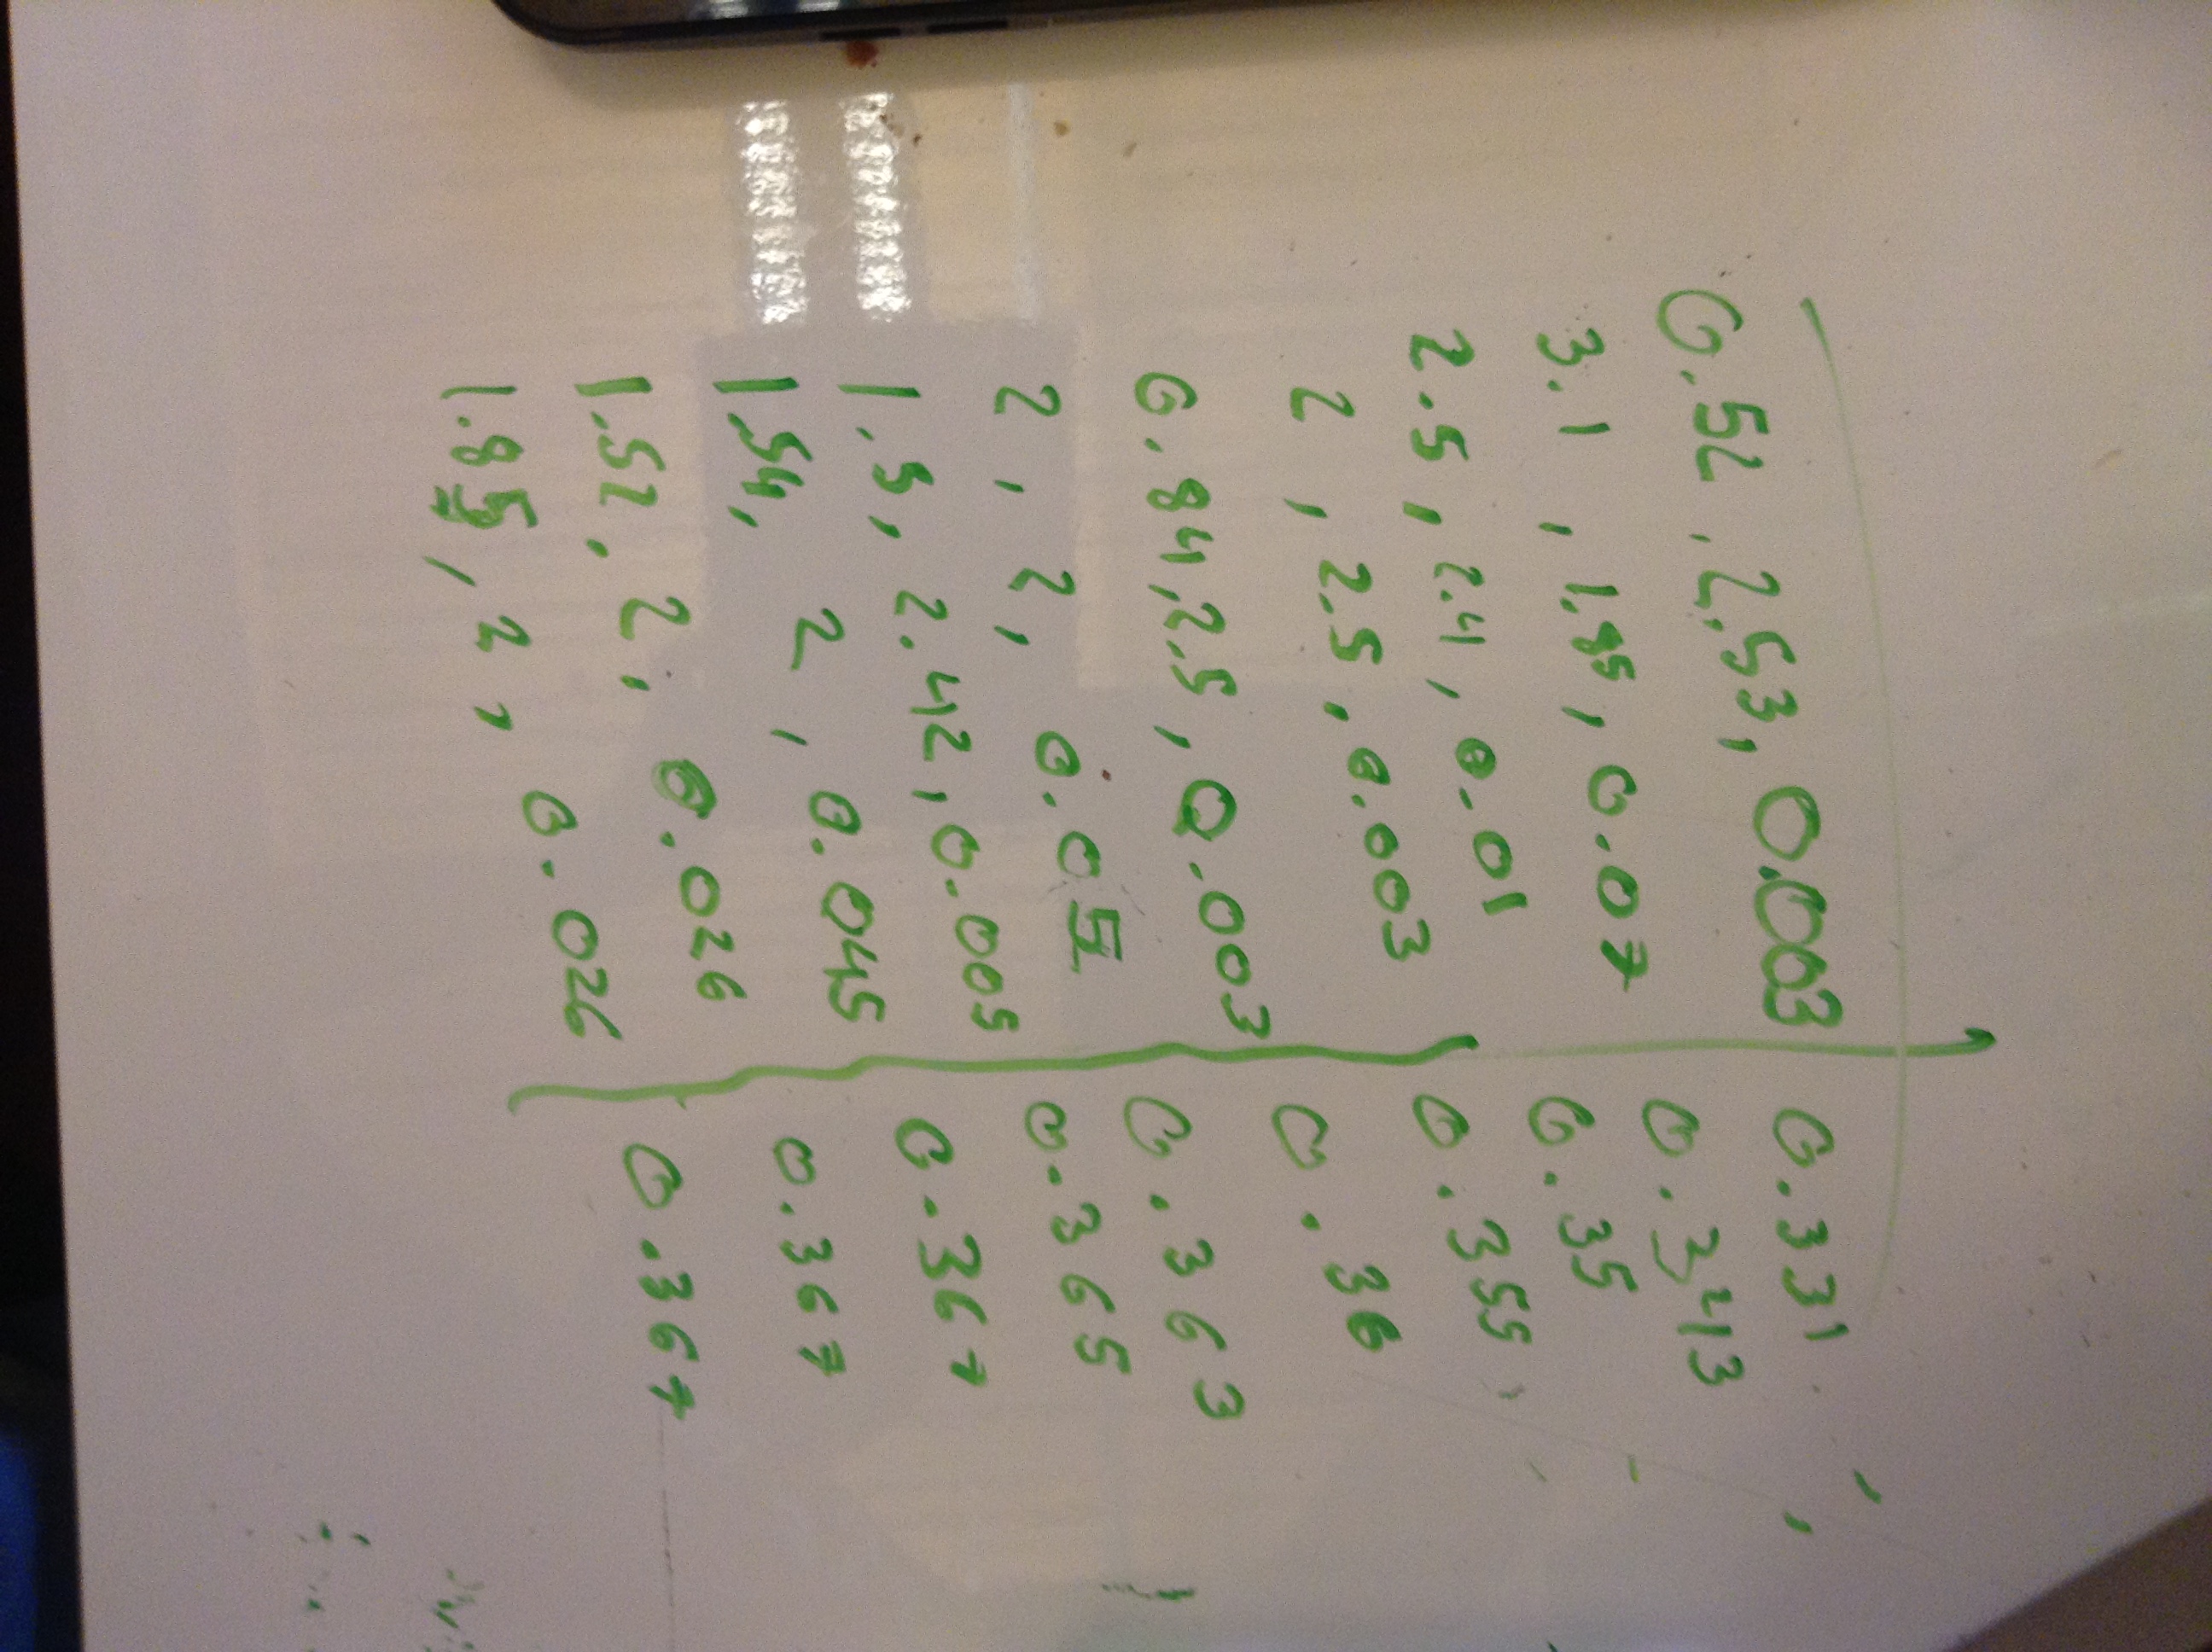 0.52, 2.53, 0.003 | 0.331
3.1, 1.85, 0.07 | 0.3413
2.5, 2.4, 0.01 | 0.35
2, 2.5, 0.003 | 0.355
0.84, 2.5, 0.003 | 0.36
2, 2, 0.05 | 0.363
1.5, 2.42, 0.005 | 0.365
1.54, 2, 0.045 | 0.367
1.52, 2, 0.026 | 0.367
1.85, 2, 0.026 | 0.367